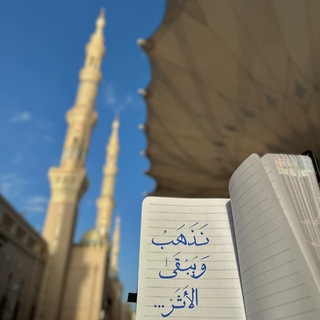 نَذهَبُ
وَيَبْقَىٰ
الأَثَر...